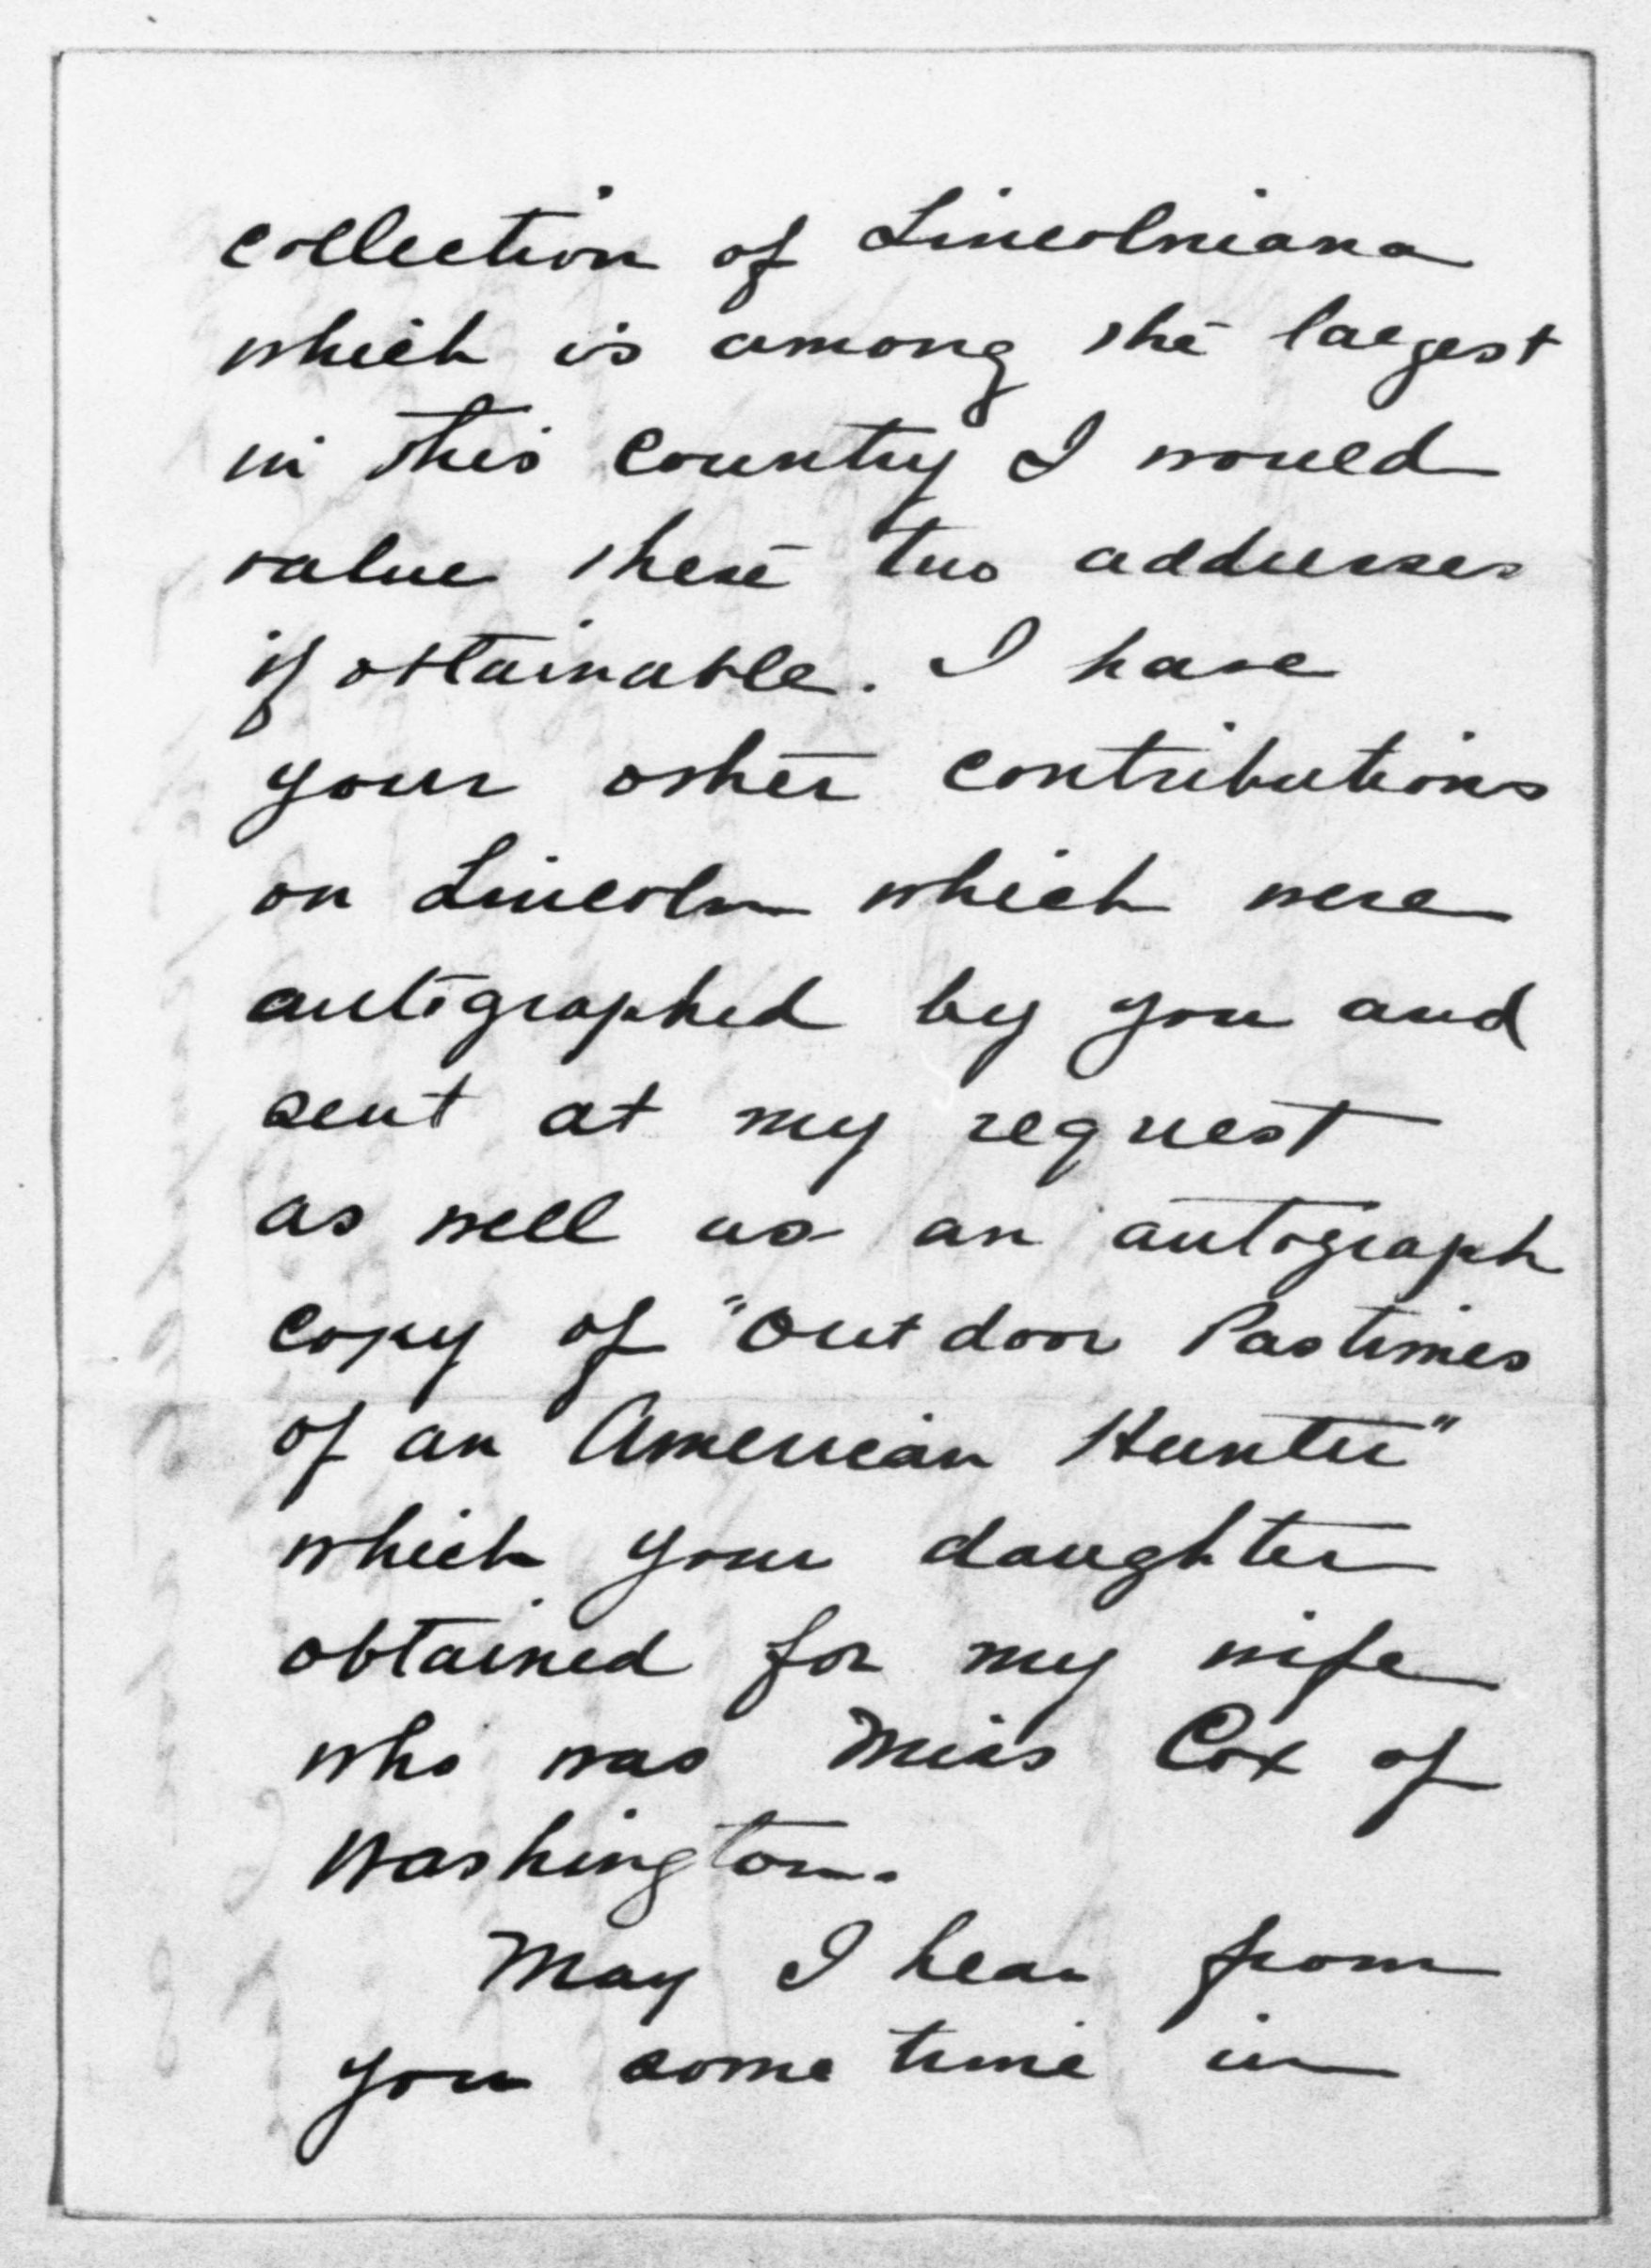 collection of Lincolniana
which is among the largest
in this country I would
value these two addresses
if obtainable. I have
your other contributions
on Lincoln which were
autographed by you and
sent at my request
as well as an autograph
copy of "Outdoor Pastimes
of an American Hunter"
which your daughter
obtained for my wife
who was Miss Cox of
Washington.
May I hear from
you some time in